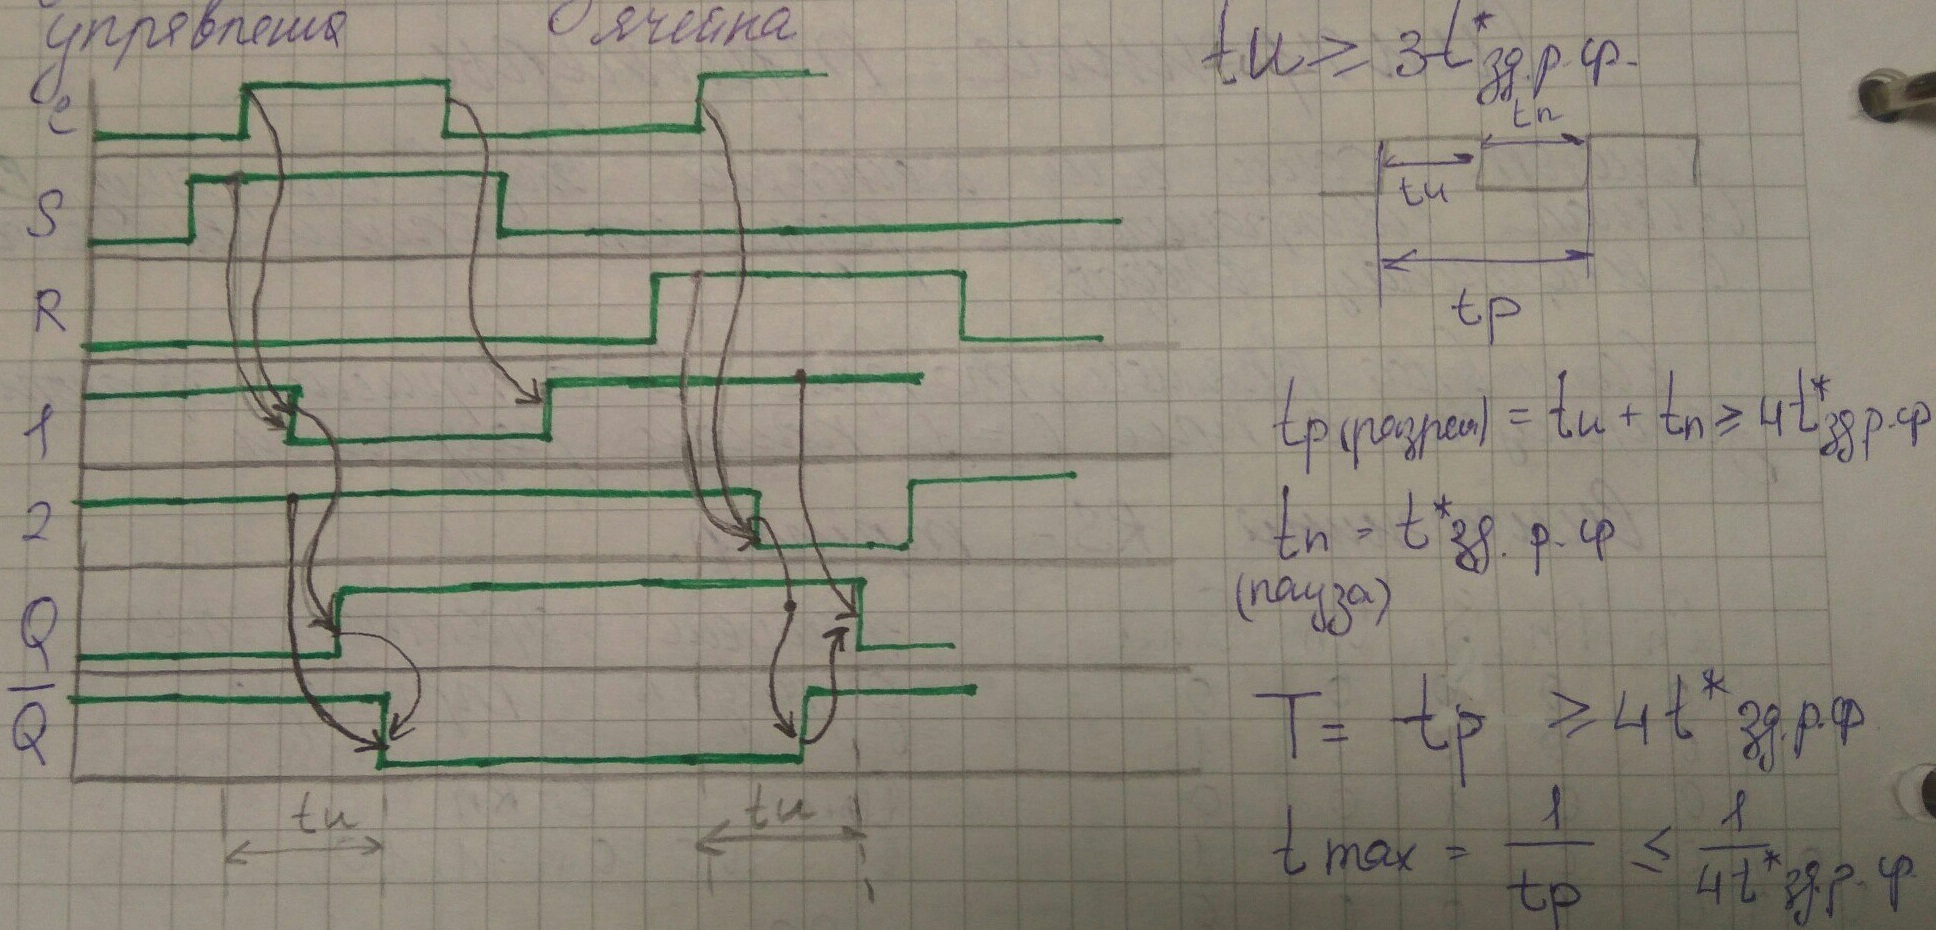 управления ячейка
C
S
R
1
2
Q
Q̅
tи
tи
tи ≥ 3t*зд.р.ср.
tп
tи
tр
tр(разреш) = tи + tп ≥ 4t*зд р.ср
tп = t*зд. р. ср
(пауза)
T = tр ≥ 4t*зд.р.ср.
t max = 1/tр ≤ 1/4t*зд.р.ср.